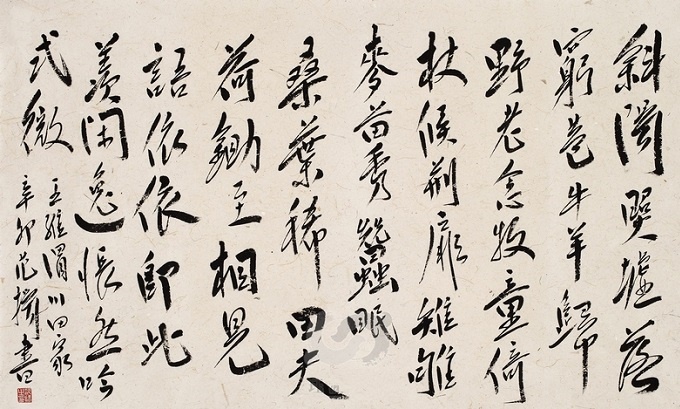 斜陽照墟落
窮巷牛羊歸
野老念牧童倚
杖候荊扉雉雊
麥苗秀蠶眠
桑葉稀田夫
荷鋤至相見
語依依即此
羨閑逸悵然吟
式微
王維渭川田家
辛卯范書